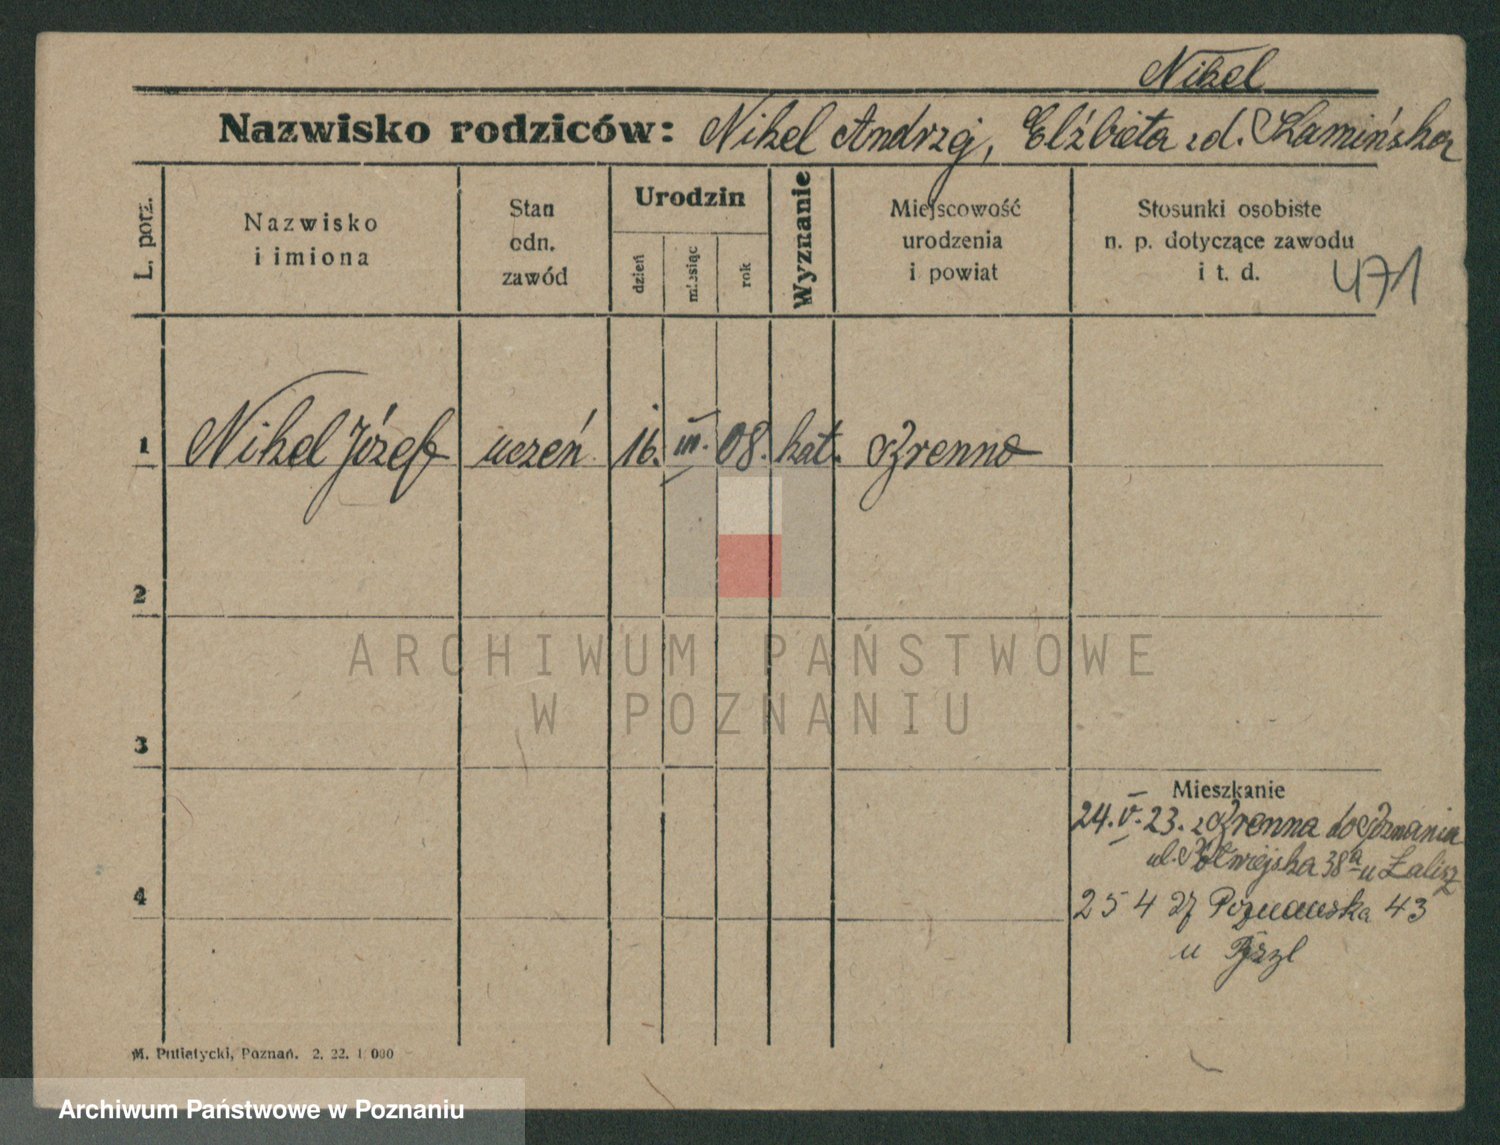 Nikel
Nazwisko rodziców: Nikel Andrzej, Elżbieta z d. Kamińska
L. porz.
Nazwisko
i imiona
Stan
odn.
zawód
Urodzin
dzień
miesiąc
rok
Wyznanie
Miejscowość
urodzenia
i powiat
Stosunki osobiste
n. p. dotyczące zawodu
i t. d.
471
1 Nikel Józef uczeń 16. III. 08. kat. Brenno
2
ARCHIWUM PAŃSTWOWE
W POZNANIU
3
Mieszkanie
24. V. 23. z Brenna do Poznania
ul. Półwiejska 38a u Łalisz
4
25 4 27 Poznańska 43
u
M. Putiatycki, Poznań. 2. 22. 1 000
Archiwum Państwowe w Poznaniu